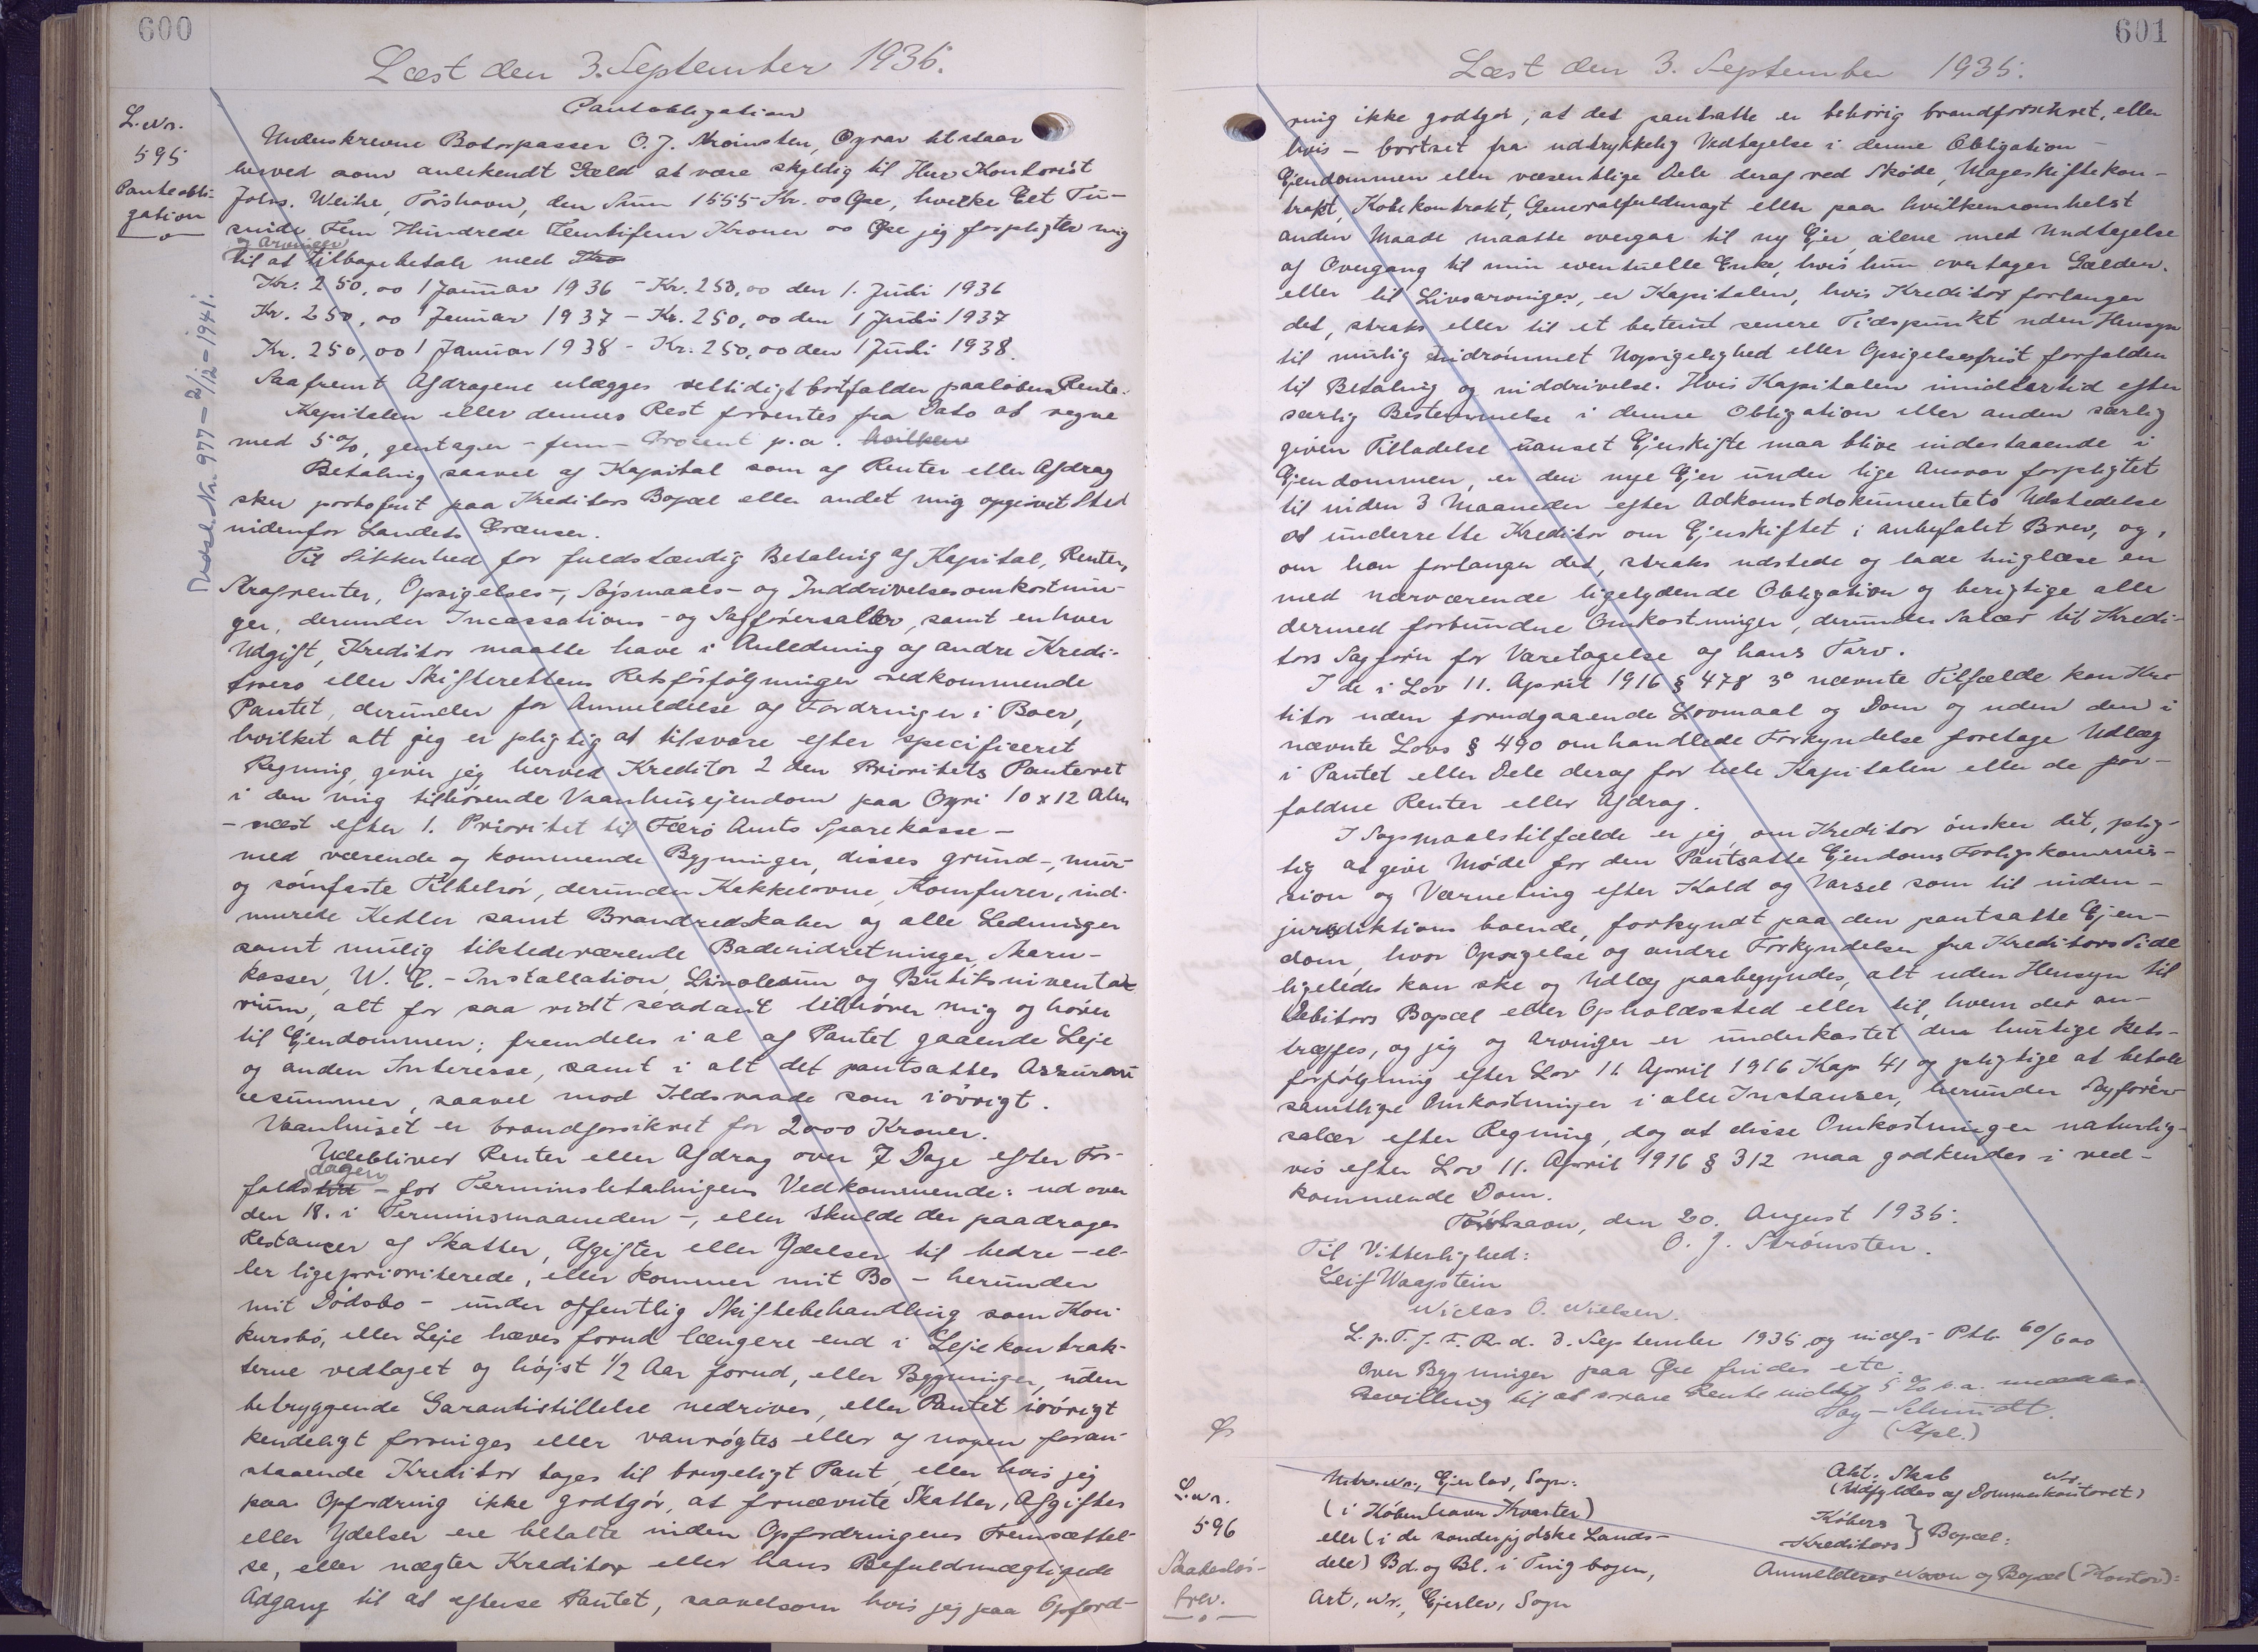 600
Læst den 3. September 1935.
L. Nr.
595
Panteobli-
gation
Udslt. Nr. 977 – 2/12 – 1941.
Pantobligation
Underskrevne Baadpasser O. J. Strømsten, Oyrar tilstaar
herved som anerkendt Gæld at være skyldig til Herr Kontorist
Johs. Weihe, Tórshavn, den Sum 1555 Kr. 00 Øre, hvilke Eet Tu-
sinde Fem Hundrede Femtifem Kroner 00 Øre jeg forpligter mig
og Arvinger
til at tilbagebetale med
Kr. 250,00 1 Januar 1936 – Kr. 250,00 den 1. Juli 1936
Kr. 250,00 1 Januar 1937 – Kr. 250,00 den 1 Juli 1937
Kr. 250,00 1 Januar 1938 – Kr. 250,00 den 1 Juli 1938.
Saafremt Afdragene erlægges rettidigt bortfalder paaløben Rente.
Kapitalen eller dennes Rest forrentes fra Dato at regne
med 5%, gentager – fem – Procent p.a. hvilken
Betaling saavel af Kapital som af Renter eller Afdrag
sker portofrit paa Kreditors Bopæl eller andet mig opgivet Sted
indenfor Landets Grænser.
Til Sikkerhed for fuldstændig Betaling af Kapital, Renter,
Strafrenter, Opsigelses-, Søgsmaals- og Inddrivelsesomkostnin-
ger, derunder Incassations- og Sagførersallær, samt enhver
Udgift, Kreditor maatte have i Anledning af andre Kredi-
torers eller Skifterettens Retsforfølgninger vedkommende
Pantet, derunder for Anmeldelse af Fordringer i Boer,
hvilket alt jeg er pligtig at tilsvare efter specificeret
Regning, giver jeg herved Kreditor 2 den Prioritets Panteret
i den mig tilhørende Vaanhusejendom paa Oyri 10 x 12 Alen
– næst efter 1. Prioritet til Færø Amts Sparekasse –
med værende og kommende Bygninger, disses grund-, mur-
og sømfaste Tilbehør, derunder Kakkelovne, Komfurer, ind-
murede Kedler samt Brandredskaber og alle Ledninger
samt mulig tilstedeværende Badeindretninger, Marn-
kasser, W. C. – Installation, Linoleum og Butiksinventa-
rium, alt for saa vidt saadant tilhører mig og hører
til Ejendommen; fremdeles i al af Pantet gaaende Leje
og anden Interesse, samt i alt det pantsattes Assuran-
cesummer, saavel mod Ildsvaade som iøvrigt.
Vaanhuset er brandforsikret for 2000 Kroner.
Udebliver Renter eller Afdrag over 7 Dage efter For-
dagen
faldstid – for Terminsbetalingens Vedkommende: ud over
den 18. i Terminsmaaneden –, eller skulde der paadrages
Restancer af Skatter, Afgifter eller Ydelser til bedre – el-
ler ligeprioriterede, eller kommer mit Bo – herunder
mit Dødsbo – under offentlig Skiftebehandling som Kon-
kursbo, eller Leje hæves forud længere end i Lejekontrak-
terne vedtaget og højst 1/2 Aar forud, eller Bygninger, uden
betryggende Garantistillelse nedrives, eller Pantet iøvrigt
kendeligt forringes eller vanrøgtes eller af nogen foran-
staaende Kreditor tages til brugeligt Pant, eller hvis jeg
paa Opfordring ikke godtgør, at fornævnte Skatter, Afgifter
eller Ydelser ere betalte inden Opfordringens Fremsættel-
se, eller nægter Kreditor eller hans Befuldmægtigede
Adgang til at efterse Pantet, saavelsom hvis jeg paa Opford-
601
Læst den 3. September 1935.
ring ikke godtgør, at det pantsatte er behørig brandforsikret, eller
hvis – bortset fra udtrykkelig Vedtagelse i denne Obligation –
Ejendommen eller væsentlige Dele deraf ved Skøde, Mageskiftekon-
trakt, Købekontrakt, Generalfuldmagt eller paa hvilkensomhelst
anden Maade maatte overgaa til ny Ejer, alene med Undtagelse
af Overgang til min eventuelle Enke, hvis hun overtager Gælden,
eller til Livsarvinger, er Kapitalen, hvis Kreditor forlanger
det, straks eller til et bestemt senere Tidspunkt uden Hensyn
til mulig indrømmet Uopsigelighed eller Opsigelsesfrist forfalden
til Betaling og inddrivelse. Hvis Kapitalen imidlertid efter
særlig Bestemmelse i denne Obligation eller anden særlig
given Tilladelse uanset Ejerskifte maa blive indestaaende i
Ejendommen, er den nye Ejer under lige Ansvar forpligtet
til inden 3 Maaneder efter Adkomstdokumentets Udstedelse
at underrette Kreditor om Ejerskiftet i anbefalet Brev, og,
om han forlanger det, straks udstede og lade tinglæse en
med nærværende ligelydende Obligation og berigtige alle
dermed forbundne Omkostninger, derunder Salær til Kredi-
tors Sagfører for Varetagelse af hans Tarv.
I de i Lov 11. April 1916 § 478 3° nævnte Tilfælde kan Kre-
ditor uden forudgaaende Lovmaal og Dom og uden den i
nævnte Lovs § 490 omhandlede Forkyndelse foretage Udlæg
i Pantet eller Dele deraf for hele Kapitalen eller de for-
faldne Renter eller Afdrag.
I Søgsmaalstilfælde er jeg, om Kreditor ønsker det, plig-
tig at give Møde for den Pantsatte Ejendoms Forligskommis-
sion og Værneting efter Kald og Varsel som til inden-
jurisdiktions boende, forkyndt paa den pantsatte Ejen-
dom, hvor Opsigelse og andre Forkyndelser fra Kreditors Side
ligeledes kan ske og Udlæg paabegyndes, alt uden Hensyn til
Debitors Bopæl eller Opholdssted eller til, hvem der an-
træffes, og jeg og Arvinger er underkastet den hurtige Rets-
forfølgning efter Lov 11. April 1916 Kap 41 og pligtige at betale
samtlige Omkostninger i alle Instanser, herunder Sagfører-
salær efter Regning, dog at disse Omkostninger naturlig-
vis efter Lov 11. April 1916 § 312 maa godkendes i ved-
kommende Dom.
Tórshavn, den 20. August 1935.
O. J. Strømsten.
Til Vitterlighed:
Leif Waagstein
Niclas O. Nielsen.
L. p. T. f. F. R. d. 3. September 1935 og indf. i Ptb 60/600
Over Bygninger paa Øre findes etc
Bevilling til at svare Rente indtil 5 % p.a. meddeles
Day – Schmidt.
(Stpl.)
L. nr.
596
Skadesløs-
brev.
Mtr. nr., Ejerlav, Sogn:
(i København Kvarter)
eller (i de sønderjydske Lands-
dele) Bd. og Bl. i Tingbogen,
Art, Nr., Ejerlav, Sogn
Akt: Skab Nr.
(Udfyldes af Dommerkontoret)
Købers
Kreditors } Bopæl:
Anmelderes Navn og Bopæl (Kontor):